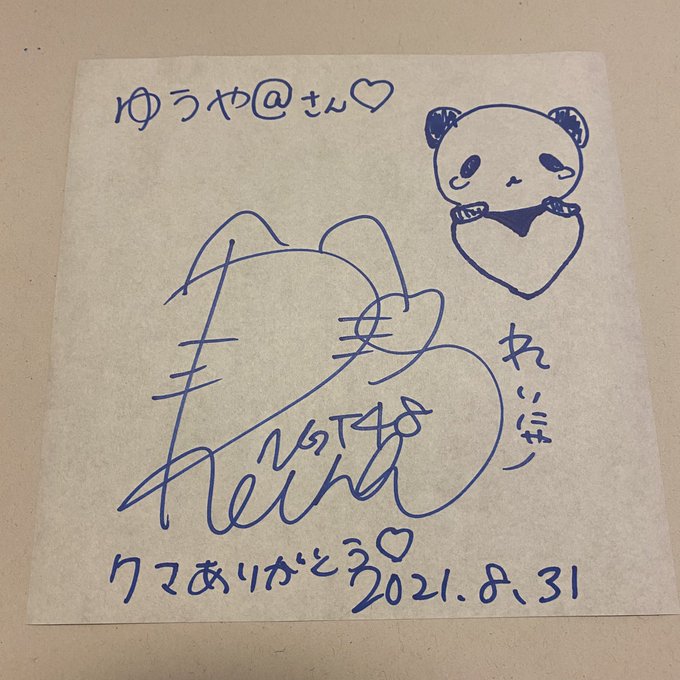 ゆうや@さん♡
れいにゃー
NGT48
Reina
クマありがとう♡
2021.8.31